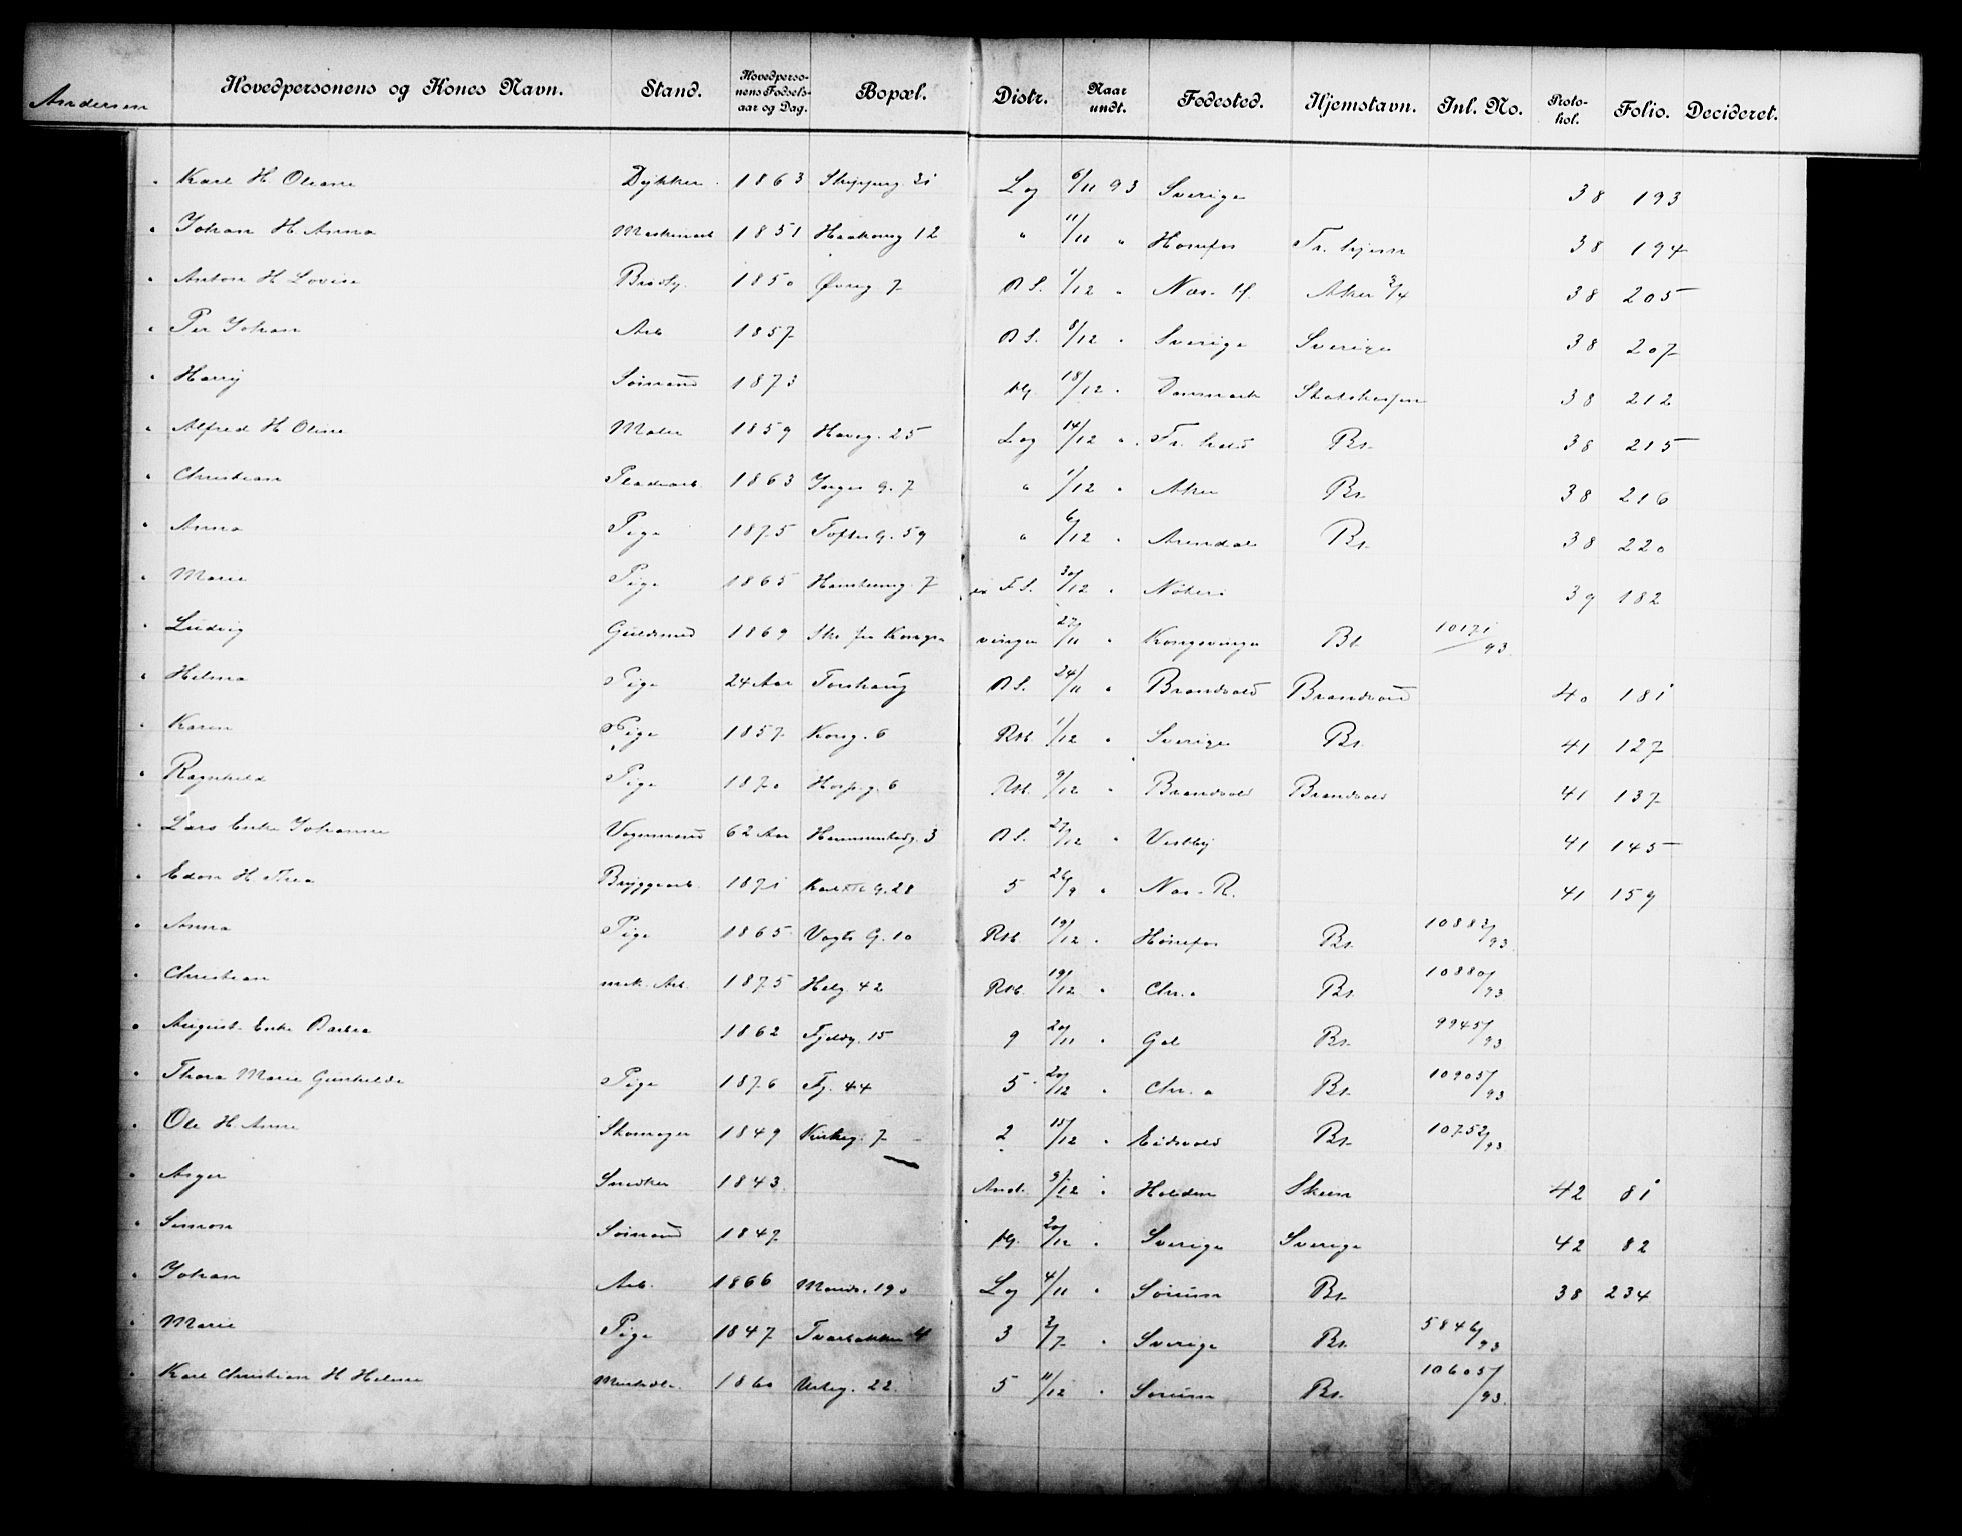 Andersen Hovedpersonens og Kones Navn. Stand. Hovedpersonens Fødselsaar og Dag. Bopæl. Distr. Naar undt. Fødested. Hjemstavn. Inl. No. Protokol. Folio. Decideret.
" Karl H. Oleane Dykker 1863 Skipperg 31 Log 6/11 93 Sverige 38 193
" Johan H Anna Maskinarb 1851 Haakonsg 12 " 11/11 " Hønefos Tr. hjem 38 194
" Anton H Lovise 1850 Øvreg 7 BS. 1/12 " Nas. H. Aker 3/4 38 205
" Per Johan Arb 1857 BS. 8/12 " Sverige Sverige 38 207
" Harry Sømand 1873 18/12 " Danmark 38 212
" Alfred H Oline Maler 1859 Haveg. 25 Log 14/12 " Fr. hald Bt. 38 215
" Christian 1863 Inges G. 7 " 1/12 " Aker Bt. 38 216
" Anna Pige 1875 Toftes G. 59 " 6/12 " Arendal Bt. 38 220
" Marie Pige 1865 7 FS. 30/12 " 39 182
" Ludvig Guldsmed 1869 Str. fra Kongsvinger 27/11 " Kongsvinger Bt. 10171/93
" Helma Pige 24 Aar Torshaug BS. 24/11 " Brandvold Brandvold 40 181
" Karen Pige 1857 Kong. 6 Rst. 1/12 " Sverige Bt. 41 127
" Ragnhild Pige 1870 Hosp. g. 6 Rst. 9/12 " Brandvold Brandvold 41 137
" Lars Enke Johanne Vognmand 62 Aar Hammersborg. 3 BS. 27/12 " Vestby 41 145
" Edon H. Thea Bryggearb. 1871 Karl XII G. 28 5 26/9 " Nas. R. 41 159
" Anna Pige 1865 Vogts G. 10 Rst. 19/12 " Hønefos Bt. 10883/93
" Christian mek. Arb. 1875 Helg 42 Rst. 19/12 " Chr.a Bt. 10880/93
" August. Enke Barbra 1862 Fjeldg. 15 9 20/11 " Gol Bt. 9945/93
" Thora Marie Gunhilde Pige 1876 Tg. 44 5 20/12 " Chr. a Bt. 10905/93
" Ole H. Anne Skomager 1849 Kirkeg. 7 2 15/12 " Eidsvold Bt. 10752/93
" Asger Snedker 1843 Ank. 9/12 " Holden Skien 42 81
" Simon Sømand 1847 20/12 " Sverige Sverige 42 82
" Johan Arb. 1866 Marids. 190 Log 4/11 " Sørum Bt. 38 234
" Marie Pige 1847 Tvaerbakken 4 3 3/7 " Sverige Bt. 5846/93
" Karl Christian H Helene 1860 Urteg. 22 5 11/12 " Sørum Bt. 10605/93